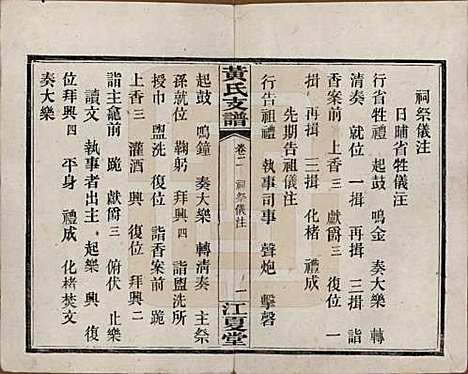 祠祭儀注
日晡省牲儀注
行省牲禮 起鼓 鳴金 奏大樂 轉
清奏 就位 一揖 再揖 三揖 詣
香案前 上香三 獻爵三 復位 一
揖 再揖 三揖 化楮 禮成
先期告祖儀注
行告祖禮 執事司事 聲炮 擊磬
黃氏支譜
卷二 祠祭儀注
一
江夏堂
起鼓 鳴鐘 奏大樂 轉清奏 主祭
孫就位 鞠躬 拜興四 詣盥洗所
授巾 盥洗 復位 詣香案前 跪
上香三 灌酒 興 復位 拜興二
詣主龕前 跪 獻爵三 俯伏 止樂
讀文 執事者出主 起樂 興 復
位 拜興四 平身 禮成 化楮焚文
奏大樂